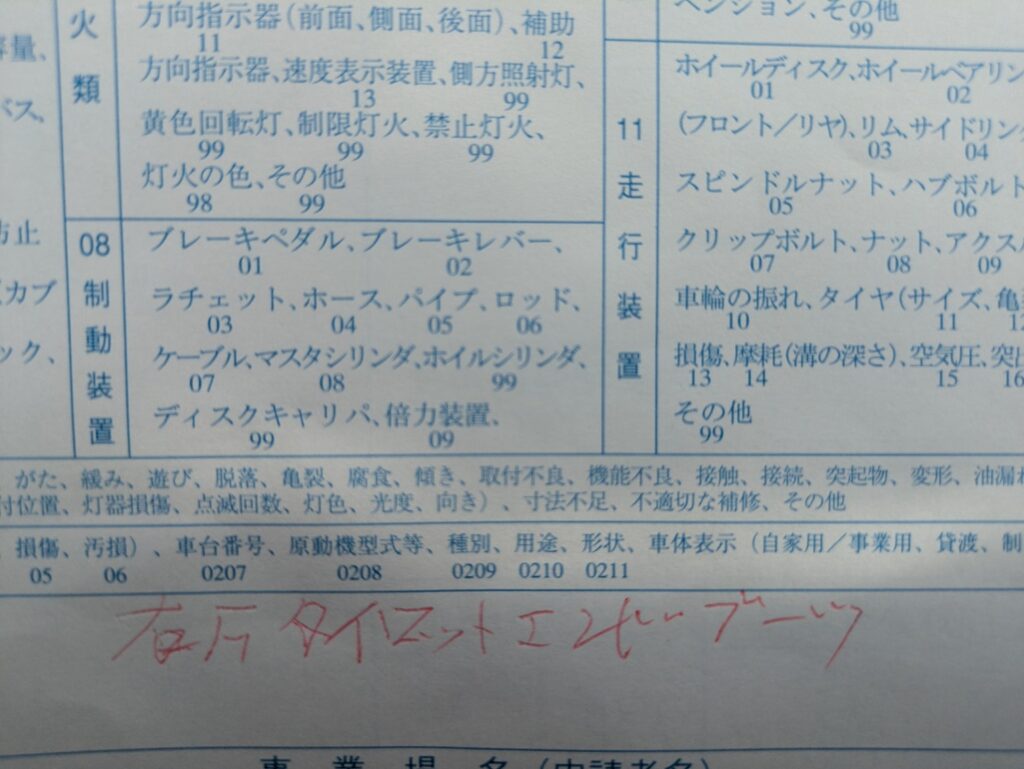 容量、
バス、
防止
カブ
ック、
火類
方向指示器(前面、側面、後面)、補助
11 12
方向指示器、速度表示装置、側方照射灯、
13 99
黄色回転灯、制限灯火、禁止灯火、
99 99 99
灯火の色、その他
98 99
08 制動装置
ブレーキペダル、ブレーキレバー、
01 02
ラチェット、ホース、パイプ、ロッド、
03 04 05 06
ケーブル、マスタシリンダ、ホイルシリンダ、
07 08 99
ディスクキャリパ、倍力装置、
99 09
ペンション、その他
99
11 走行装置
ホイールディスク、ホイールベアリン
01 02
(フロント/リヤ)、リム、サイドリング
03 04
スピンドルナット、ハブボルト
05 06
クリップボルト、ナット、アクスル
07 08 09
車輪の振れ、タイヤ(サイズ、亀
10 11 12
損傷、摩耗(溝の深さ)、空気圧、突出
13 14 15 16
その他
99
がた、緩み、遊び、脱落、亀裂、腐食、傾き、取付不良、機能不良、接触、接続、突起物、変形、油漏れ
付位置、灯器損傷、点滅回数、灯色、光度、向き)、寸法不足、不適切な補修、その他
損傷、汚損)、車台番号、原動機型式等、種別、用途、形状、車体表示(自家用/事業用、貸渡、制
05 06 0207 0208 0209 0210 0211
右 タイロットエンド ブーツ
事業場名(申請者名)